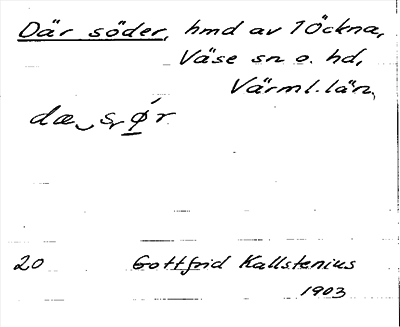 Där söder, hmd av 1 Öckna,
Väse sn o. hd,
Värml. län.
dæ‿s̩ǿ̱r
20 Gottfrid Kallstenius
1903